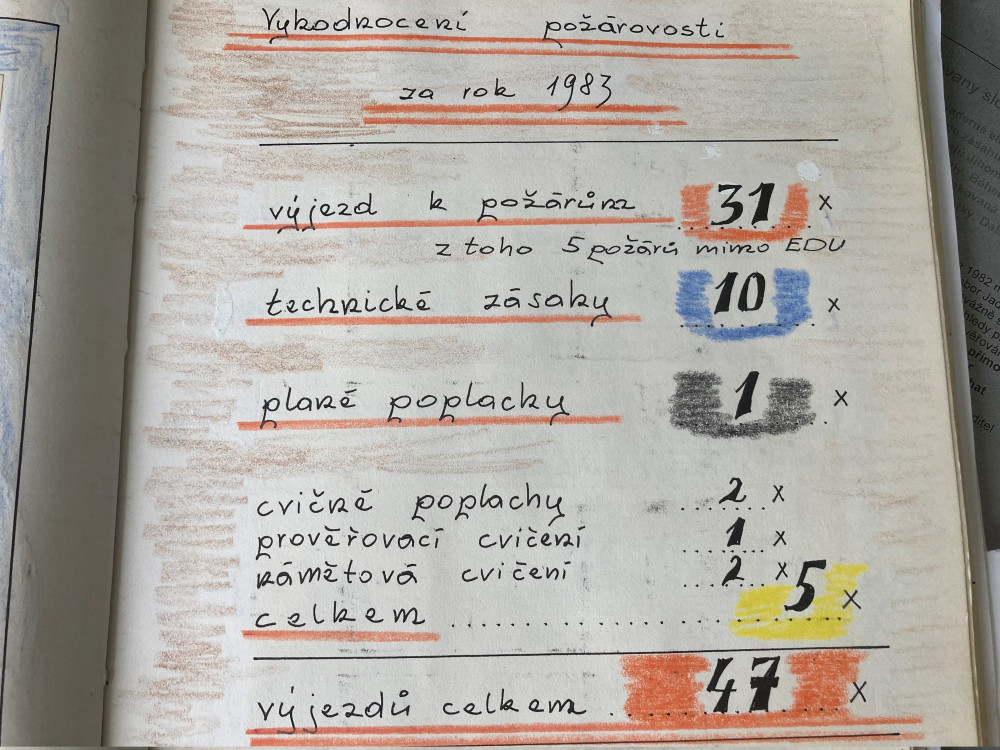 Vyhodnocení požárovosti
za rok 1983
výjezd k požárům 31 x
z toho 5 požárů mimo EDU
technické zásahy 10 x
plané poplachy 1 x
cvičné poplachy 2 x
prověřovací cvičení 1 x
námětová cvičení 2 x
celkem 5 x
výjezdů celkem 47 x